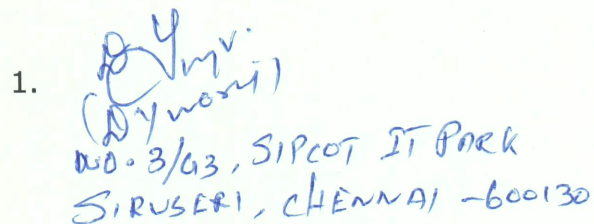 1.
NO. 3/G3, SIPCOT IT PARK
SIRUSERI, CHENNAI - 600130